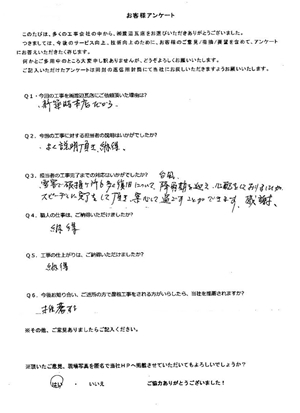 お客様アンケート
このたびは、多くの工事会社の中から、㈲渡辺瓦店をお選びいただきありがとうございました。
つきましては、今後のサービス向上、技術向上のために、お客様のご意見・感想・課題を含めて、アンケート
にお答えいただきたく存じます。
何かとご多用中のところ大変申し訳ありませんが、どうぞよろしくお願いいたします。
ご記入いただけたアンケートは同封の返信用封筒にて当社にお戻しいただきますようお願いいたします。
Q1・今回の工事を㈲渡辺瓦店にご依頼頂いた理由は?
新築時本店だから
Q2・今回の工事に対する担当者の説明はいかがでしたか?
よく説明頂き、納得
Q3・担当者の工事完了までの対応はいかがでしたか?
台風
スピーデに完了をして頂き 安心して過ごすことができます。感謝。
Q4・職人の仕事は、ご納得いただけましたか?
納得
Q5・工事の仕上がりは、ご納得いただけましたか?
納得
Q6・今後お知り合い、ご近所の方で屋根工事をされる方がいらしたら、当社を推薦されますか?
推薦する
※その他、ご意見ありましたらご記入ください。
※頂いたご意見、現場写真を匿名で当社HPへ掲載させていただいてもよろしいでしょうか?
はい ・ いいえ ご協力ありがとうございました!